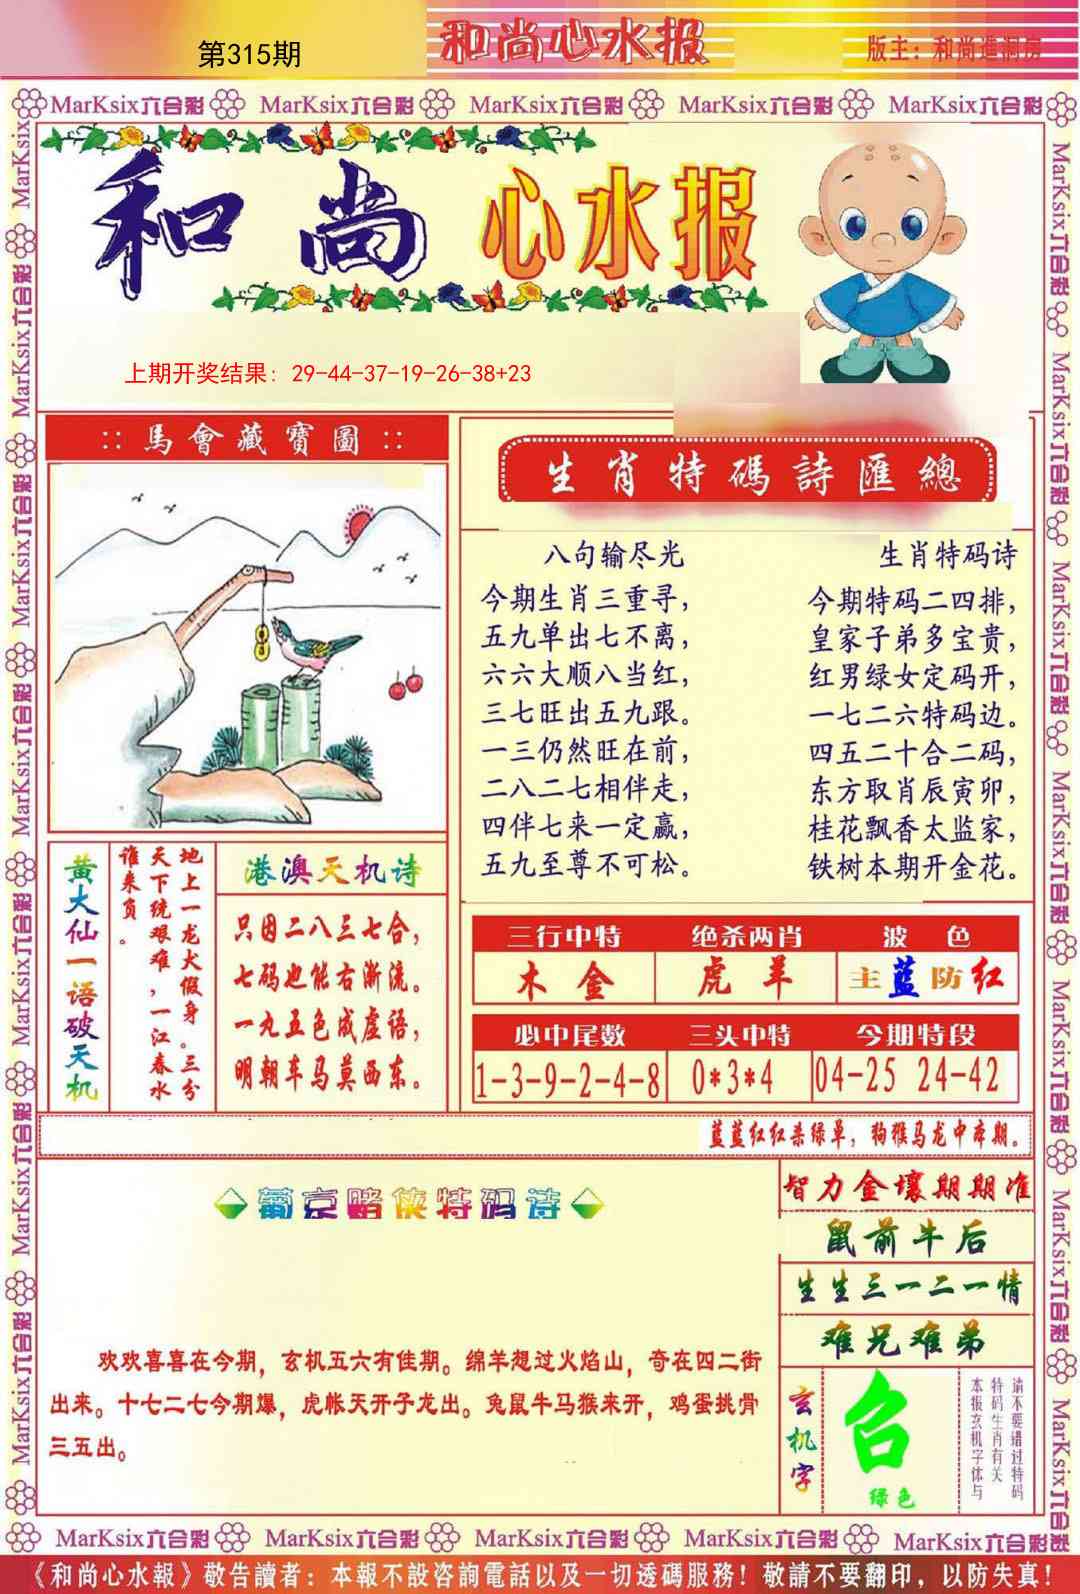 第315期
和尚心水报
版主：和尚進洞房
MarKsix六合彩 MarKsix六合彩 MarKsix六合彩 MarKsix六合彩 MarKsix六合彩
和尚心水报
上期开奖结果：29-44-37-19-26-38+23
::馬會藏寶圖::
生肖特碼詩匯總
八句输尽光
今期生肖三重寻，
五九单出七不离，
六六大顺八当红，
三七旺出五九跟。
一三仍然旺在前，
二八二七相伴走，
四伴七来一定赢，
五九至尊不可松。
生肖特码诗
今期特码二四排，
皇家子弟多宝贵，
红男绿女定码开，
一七二六特码边。
四五二十合二码，
东方取肖辰寅卯，
桂花飘香太监家，
铁树本期开金花。
黄大仙一语破天机
地上一龙犬假身。三分
天下统艰难，一江春水
谁来负。
港澳天机诗
只因二八三七合，
七码也能右渐流。
一九五色成虚语，
明朝车马莫西东。
三行中特 绝杀两肖 波色
木金 虎羊 主蓝防红
必中尾数 三头中特 今期特段
1-3-9-2-4-8 0*3*4 04-25 24-42
蓝蓝红红杀绿单，狗猴马龙中本期。
葡京赌侠特码诗
欢欢喜喜在今期，玄机五六有佳期。绵羊想过火焰山，奇在四二街
出来。十七二七今期爆，虎帐天开子龙出。兔鼠牛马猴来开，鸡蛋挑骨
三五出。
智力金壤期期准
鼠前牛后
生生三一二一情
难兄难弟
玄机字
召
绿色
请不要错过特码
特码生肖有关
本报玄机字体与
MarKsix六合彩 MarKsix六合彩 MarKsix六合彩 MarKsix六合彩 MarKsix六合彩
《和尚心水報》敬告讀者：本報不設咨詢電話以及一切透碼服務！敬請不要翻印，以防失真！